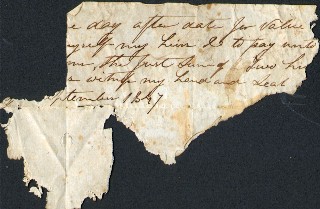 e day after date for value
myself my hirs &c to pay unto
the Just Sum of Two hu
witness my hand and Seal
September 1847